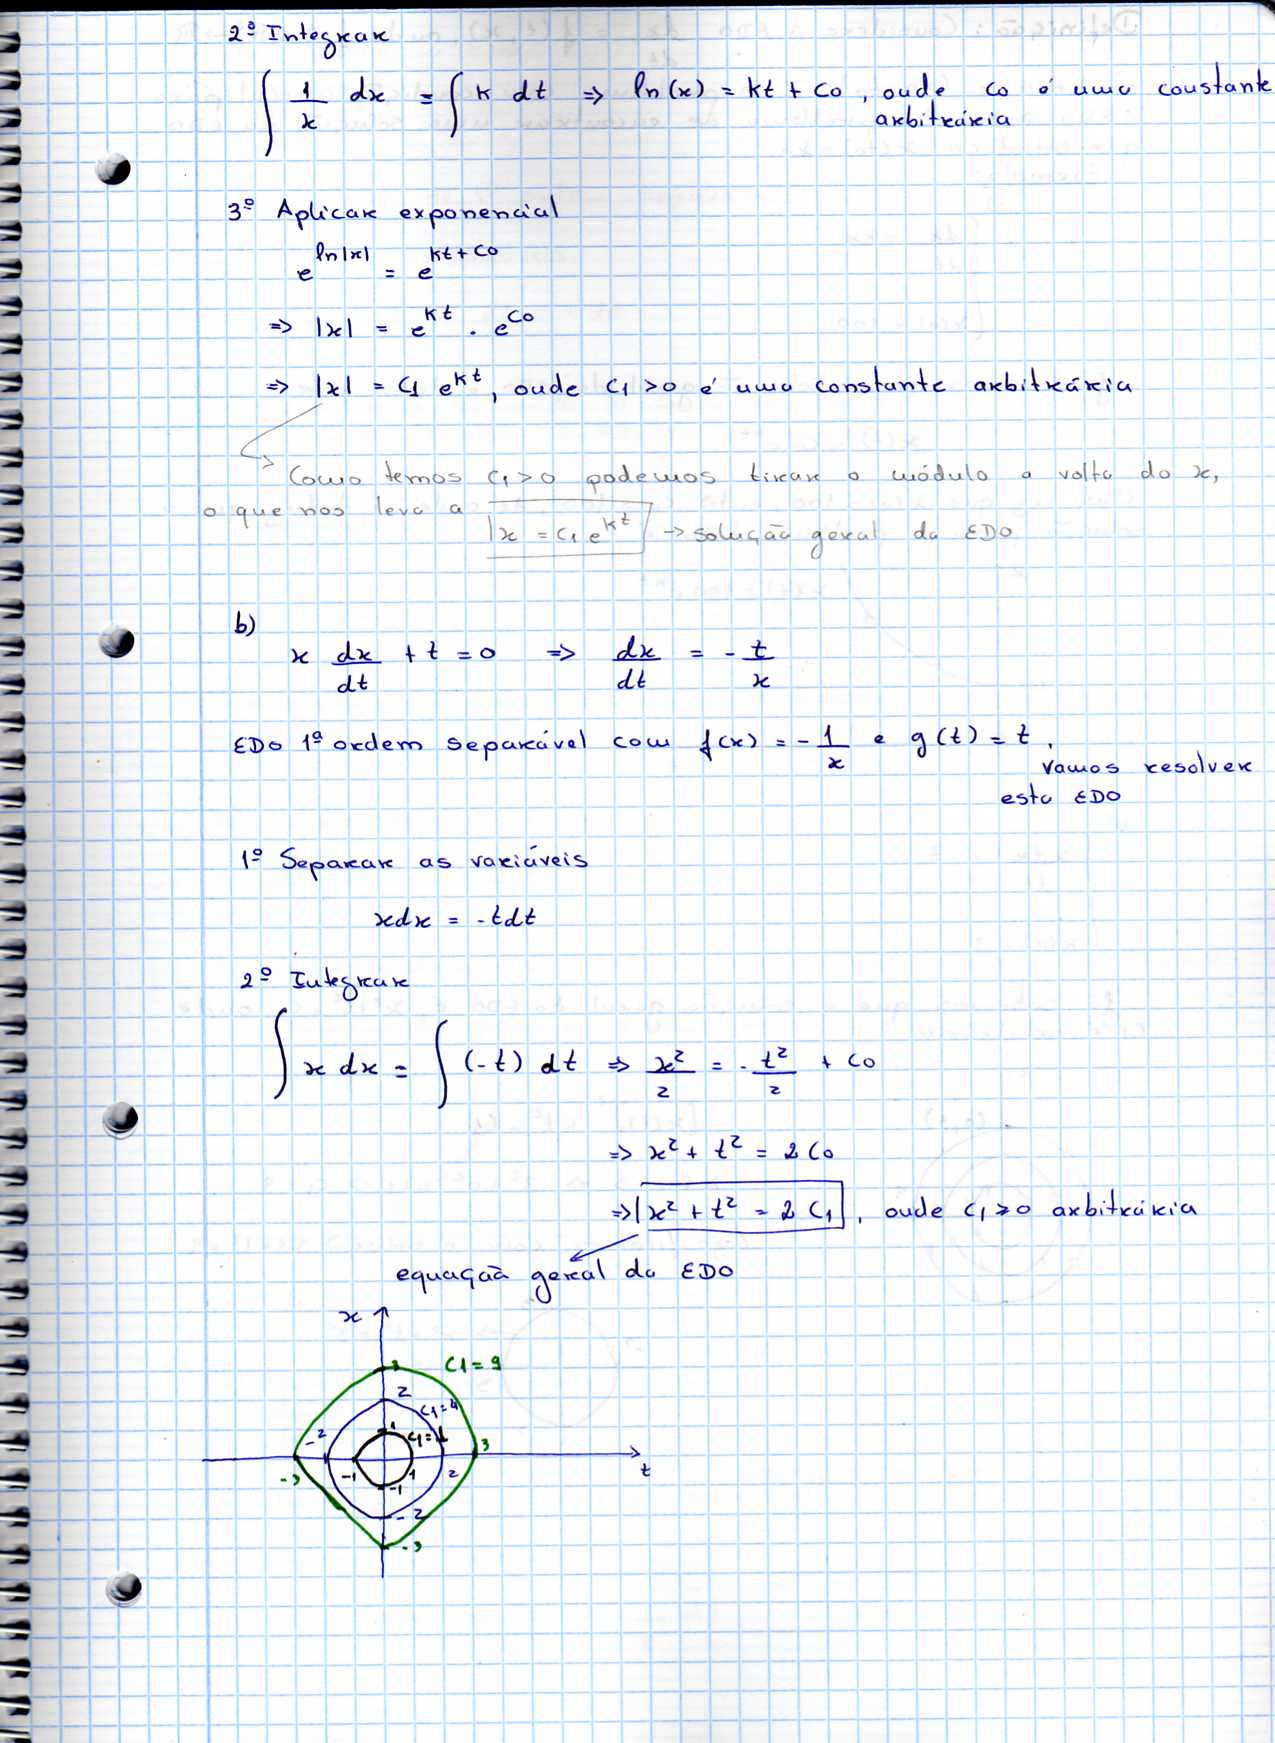 2º Integrar
∫ 1/x dx = ∫ k dt ⇒ ln(x) = kt + C0, onde C0 é uma constante
arbitrária
3º Aplicar exponencial
e^{ln|x|} = e^{kt+C0}
⇒ |x| = e^{kt} . e^{C0}
⇒ |x| = C1 e^{kt}, onde C1 > 0 é uma constante arbitrária
Como temos C1 > 0 podemos tirar o módulo a volta do x,
o que nos leva a x = C1 e^{kt} → solução geral da EDO
b)
x dx/dt + t = 0 ⇒ dx/dt = - t/x
EDO 1ª ordem separável com f(x) = - 1/x e g(t) = t.
Vamos resolver
esta EDO
1º Separar as variáveis
xdx = -tdt
2º Integrar
∫ x dx = ∫ (-t) dt ⇒ x²/2 = - t²/2 + C0
⇒ x² + t² = 2 C0
⇒ x² + t² = 2 C1, onde C1 ≥ 0 arbitrária
equação geral da EDO
x
3 C1 = 9
2
C1 = 4
1 C1 = 1
-2
3
-3 -1 1 2 t
-1
-2
-3